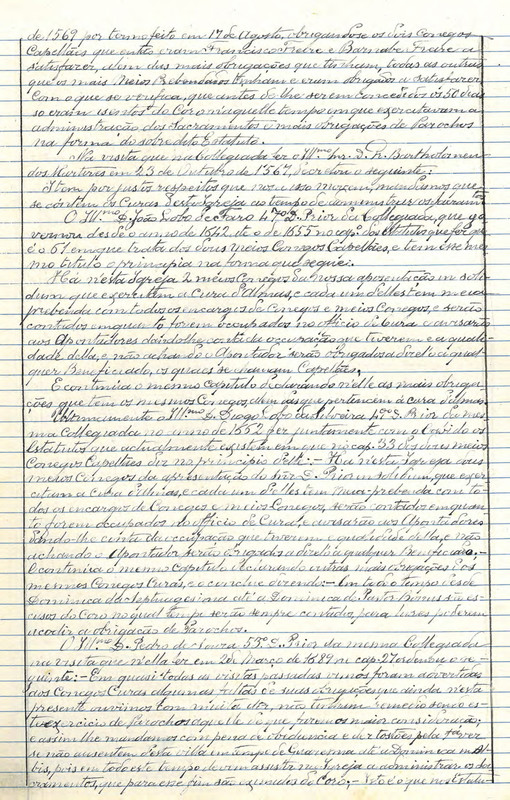 de 1569 por termo feito em 17 de Agosto, obrigandose os dois Conegos
Capellães que então eram Francisco Freire e Barnabe Freire a
satisfazer, alem das mais obrigações que tinham, todas as outras
que os mais Meios Prebendados tinham e eram obrigados a satisfazer
Com o que se verifica, que antes de lhe serem Concedidos os 50 dias
so eram isentos do Coro naquelle tempo em que exercitavam a
administração dos Sacramentos e mais obrigações de Parochos
na forma do sobredoto Estatuto.
Na visita que na Collegiada fez o Ill.mo Snr. D. Fr. Bartholomeu
dos Martires em 23 de Outubro de 1567, decretou o seguinte:
Item por justos respeitos que nos a isso movem, mandamos que
se contem os Curas desta Igreja ao tempo de administrar os sacramentos
O Ill.mo D. João Lobo de Faro 47º D. Prior da Collegiada, que go-
vernou desde o anno de 1642 ate o de 1655 no cap. dos Estatutos que fez que
é o 61 em que trata dos Seus meios Conegos Capellães, e tem esse mes-
mo titulo e principia na forma que segue:
Ha nesta Igreja 2 meios Conegos da nossa apresentação in soli-
dum que exercitam a Cura d'Almas, e cada um delles tem meia
prebenda com todos os encargos de Conegos e meios Conegos, e serão
contados emquanto forem occupados no officio de Cura e avisarão
aos Apontadores dandolhe conta da occupação que tiverem e a quali-
dade della, e não achando o Apontador serão obrigados a dizel-o a qual-
quer Beneficiado, os quaes se chamam Capellães,
E continua o mesmo capitulo declarando nelle as mais obriga-
ções que tem os mesmos Conegos, alem das que pertencem á cura d'almas.
Ultimamente o Ill.mo D. Diogo Lobo da Silveira 49º D. Prior da mes-
ma Collegiada no anno de 1652 fez juntamente com o Cabido os
Estatutos que actualmente existem em que no cap. 33 dos dois meios
Conegos Capellães diz no principio delle: - Ha nesta Igreja dois
meios Conegos da apresentação do Snr. D. Prior in solidum, que exer-
citam a Cura d'Almas, e cada um delles tem meia prebenda com to-
dos os encargos de Conegos e meios Conegos, serão contados emquan-
to forem occupados no officio de Cura, e avisarão aos Apontadores
dando-lhe conta da occupação que tiverem e qualidade della, e não
achando o Apontador serão obrigados a dizel-o a qualquer Beneficiado, -
E continua o mesmo capitulo declarando outras mais obrigações dos
mesmos Conegos Curas, e o conclue dizendo: - Em todo o tempo des da
Dominica da Septuagesima até a Dominica de Pastor Bonus são es-
cusos do Coro no qual tempo serão sempre contados, para livres poderem
acodir a obrigação de Parochos.
O Ill.mo D. Pedro de Sousa 53º D. Prior da mesma Collegiada
na visita que nella fez em 20 de Março de 1689 no cap. 27 ordenou o se-
guinte: - Em quasi todas as visitas passadas vimos foram advertidas
aos Conegos Curas algumas faltas de suas obrigações que ainda nesta
presente ouvimos com muita dor, não tinham remedio sendo es-
te exercicio de Parochos aquelle de que faremos maior consideração;
e assim lhe mandamos com pena de obediencia e de tostões pela fazer
se não ausentem desta villa em tempo de Quaresma até a Dominica in Al-
bis, pois em todo este tempo devem assistir na Igreja a administrar os Sa-
cramentos, que para esse fim são escusos do Coro; - Isto é o que no Estatu-